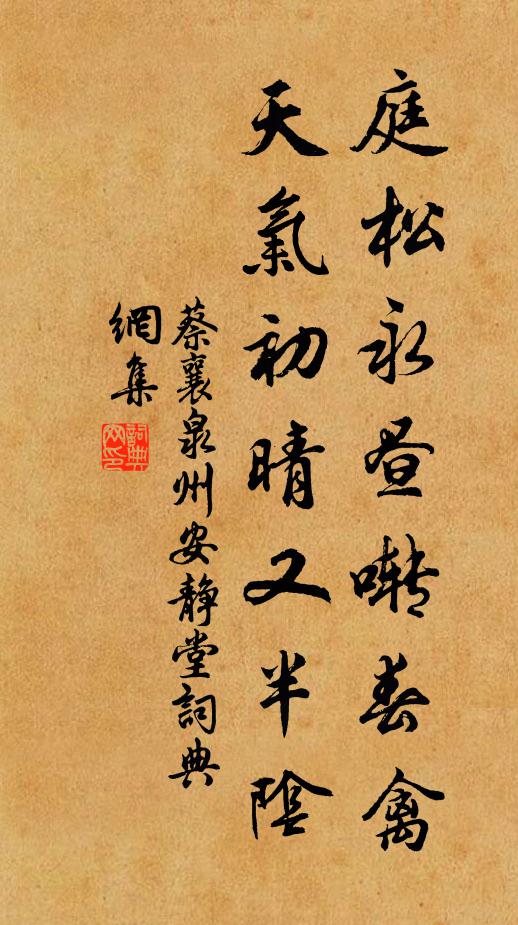 庭松永昼啭春禽
天氣初晴又半陰
蔡襄泉州安靜堂詞典
網集
詞典
网印